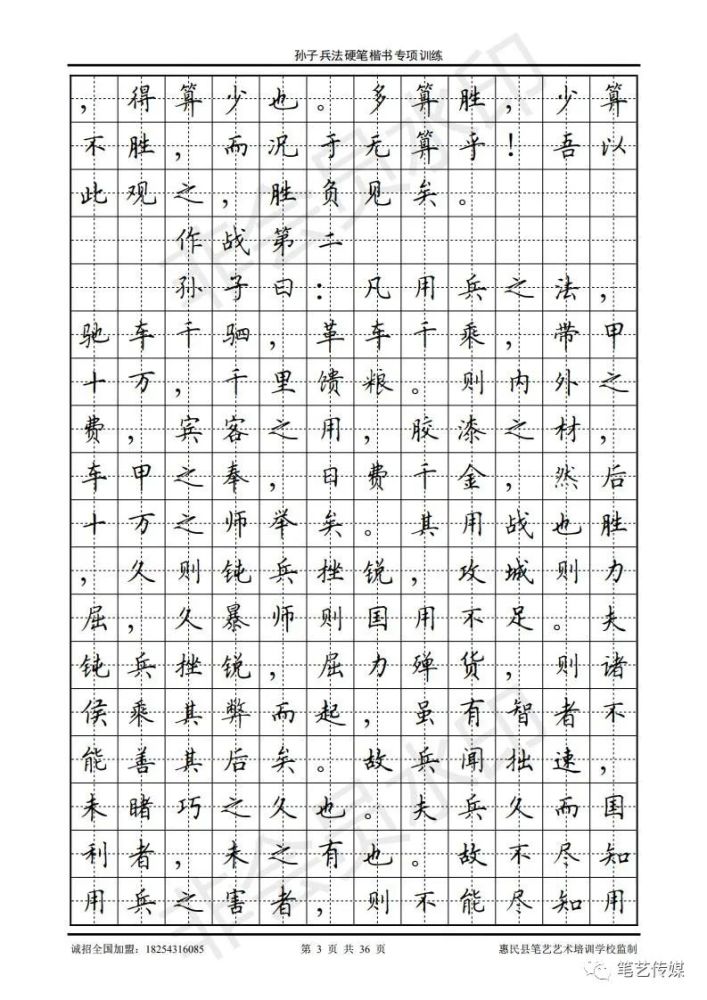 孙子兵法硬笔楷书专项训练
，得算少也。多算胜，少算
不胜，而况于无算乎！吾以
此观之，胜负见矣。
作战第二
孙子曰：凡用兵之法，
驰车千驷，革车千乘，带甲
十万，千里馈粮。则内外之
费，宾客之用，胶漆之材，
车甲之奉，日费千金，然后
十万之师举矣。其用战也胜
，久则钝兵挫锐，攻城则力
屈，久暴师则国用不足。夫
钝兵挫锐，屈力殚货，则诸
侯乘其弊而起，虽有智者不
能善其后矣。故兵闻拙速，
未睹巧之久也。夫兵久而国
利者，未之有也。故不尽知
用兵之害者，则不能尽知用
诚招全国加盟：18254316085
第 3 页 共 36 页
惠民县笔艺艺术培训学校监制
非会员水印
非会员水印
笔艺传媒